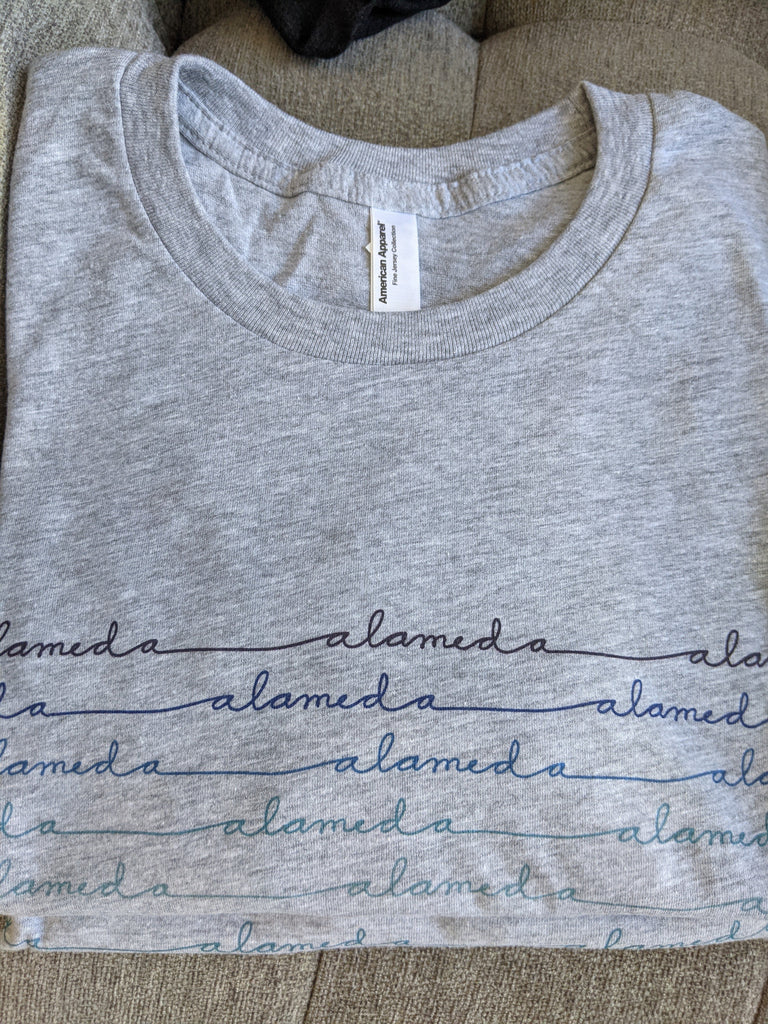 American Apparel
Fine Jersey Collection
lameda alameda ala
da alameda alamed
lameda alameda ala
da alameda alamed
lameda alameda a
a alameda alameda